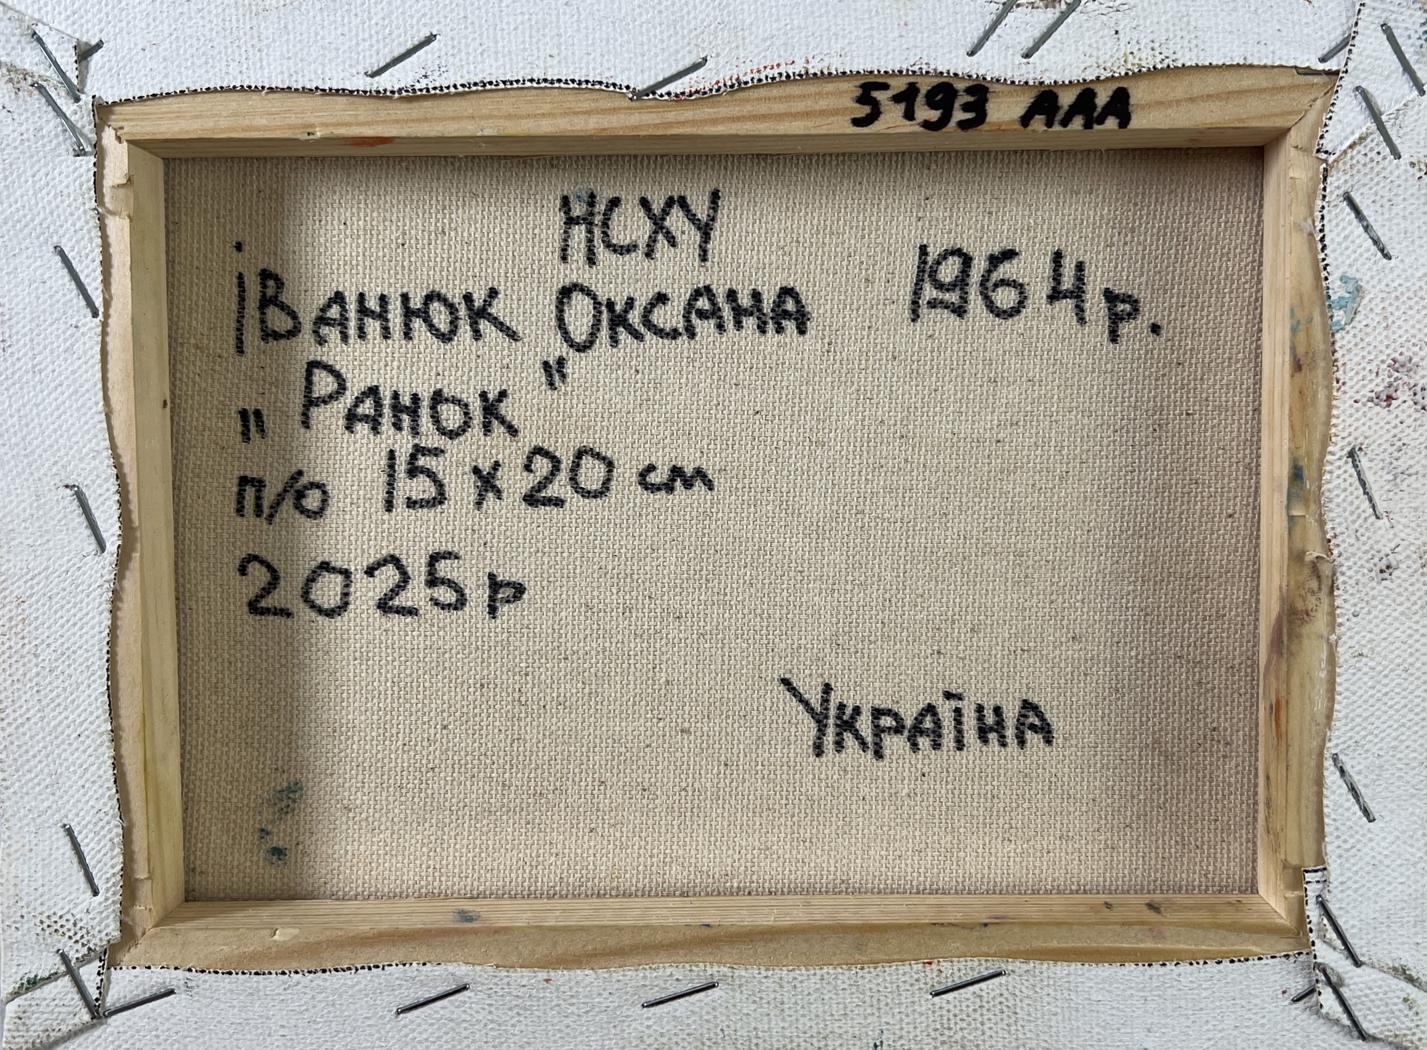 5193 ААА
НСХУ
Іванюк Оксана 1964 р.
„Ранок"
п/о 15 х 20 см
2025р
Україна